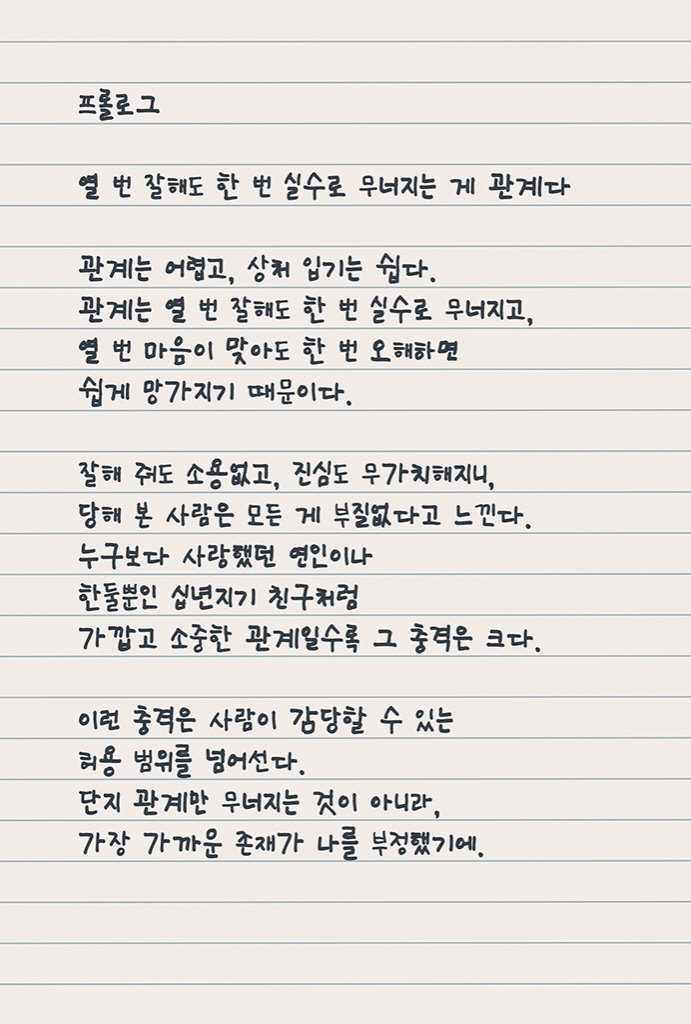 프롤로그
열 번 잘해도 한 번 실수로 무너지는 게 관계다
관계는 어렵고, 상처 입기는 쉽다.
관계는 열 번 잘해도 한 번 실수로 무너지고,
열 번 마음이 맞아도 한 번 오해하면
쉽게 망가지기 때문이다.
잘해 줘도 소용없고, 진심도 무가치해지니,
당해 본 사람은 모든 게 부질없다고 느낀다.
누구보다 사랑했던 연인이나
한둘뿐인 십년지기 친구처럼
가깝고 소중한 관계일수록 그 충격은 크다.
이런 충격은 사람이 감당할 수 있는
허용 범위를 넘어선다.
단지 관계만 무너지는 것이 아니라,
가장 가까운 존재가 나를 부정했기에.